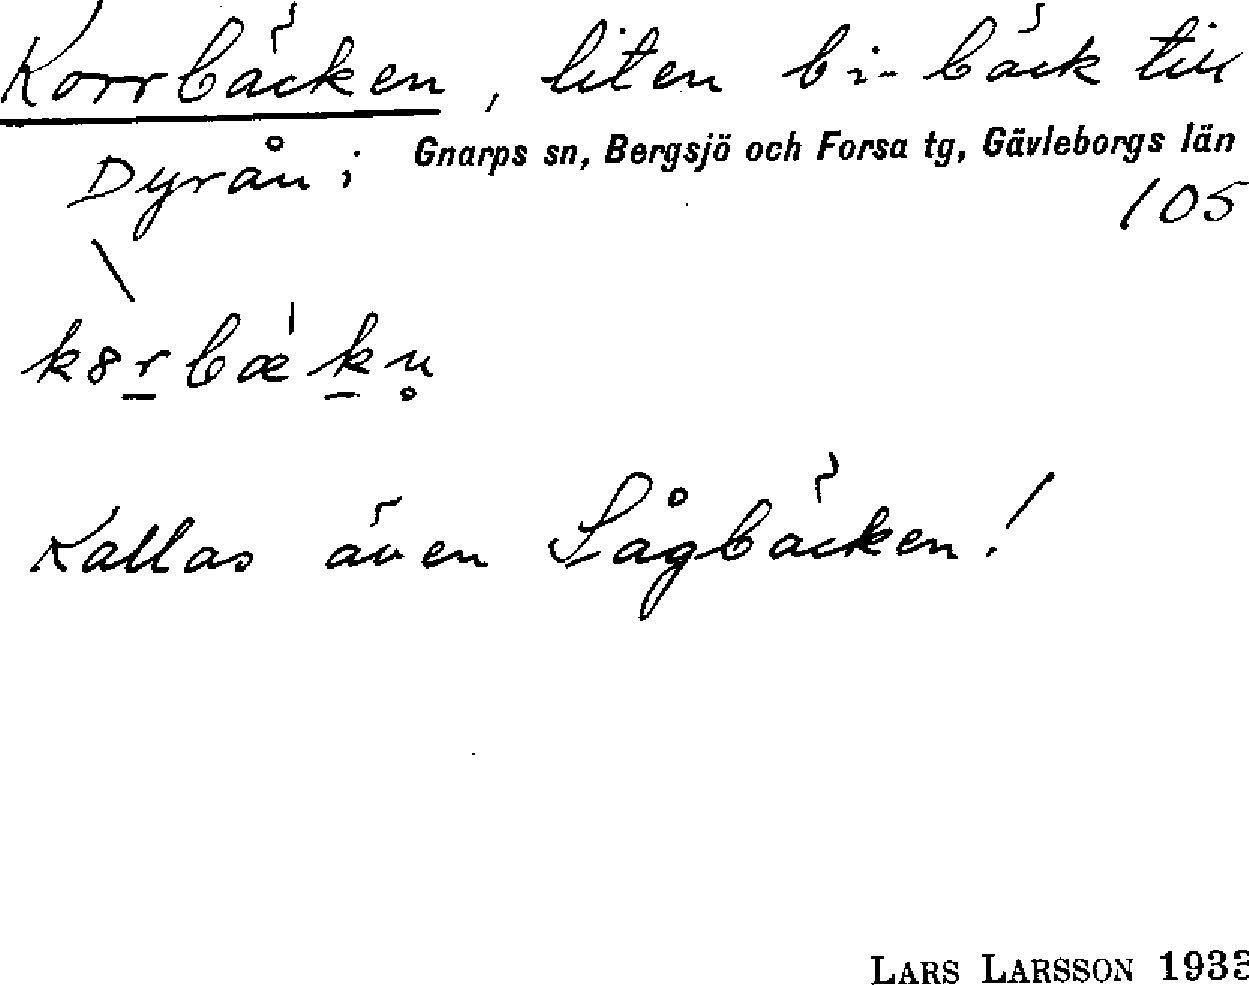 Korrbäcken, liten bi-bäck till
Dyrån i Gnarps sn, Bergsjö och Forsa tg, Gävleborgs län
105
Kallas även Sågbäcken!
LARS LARSSON